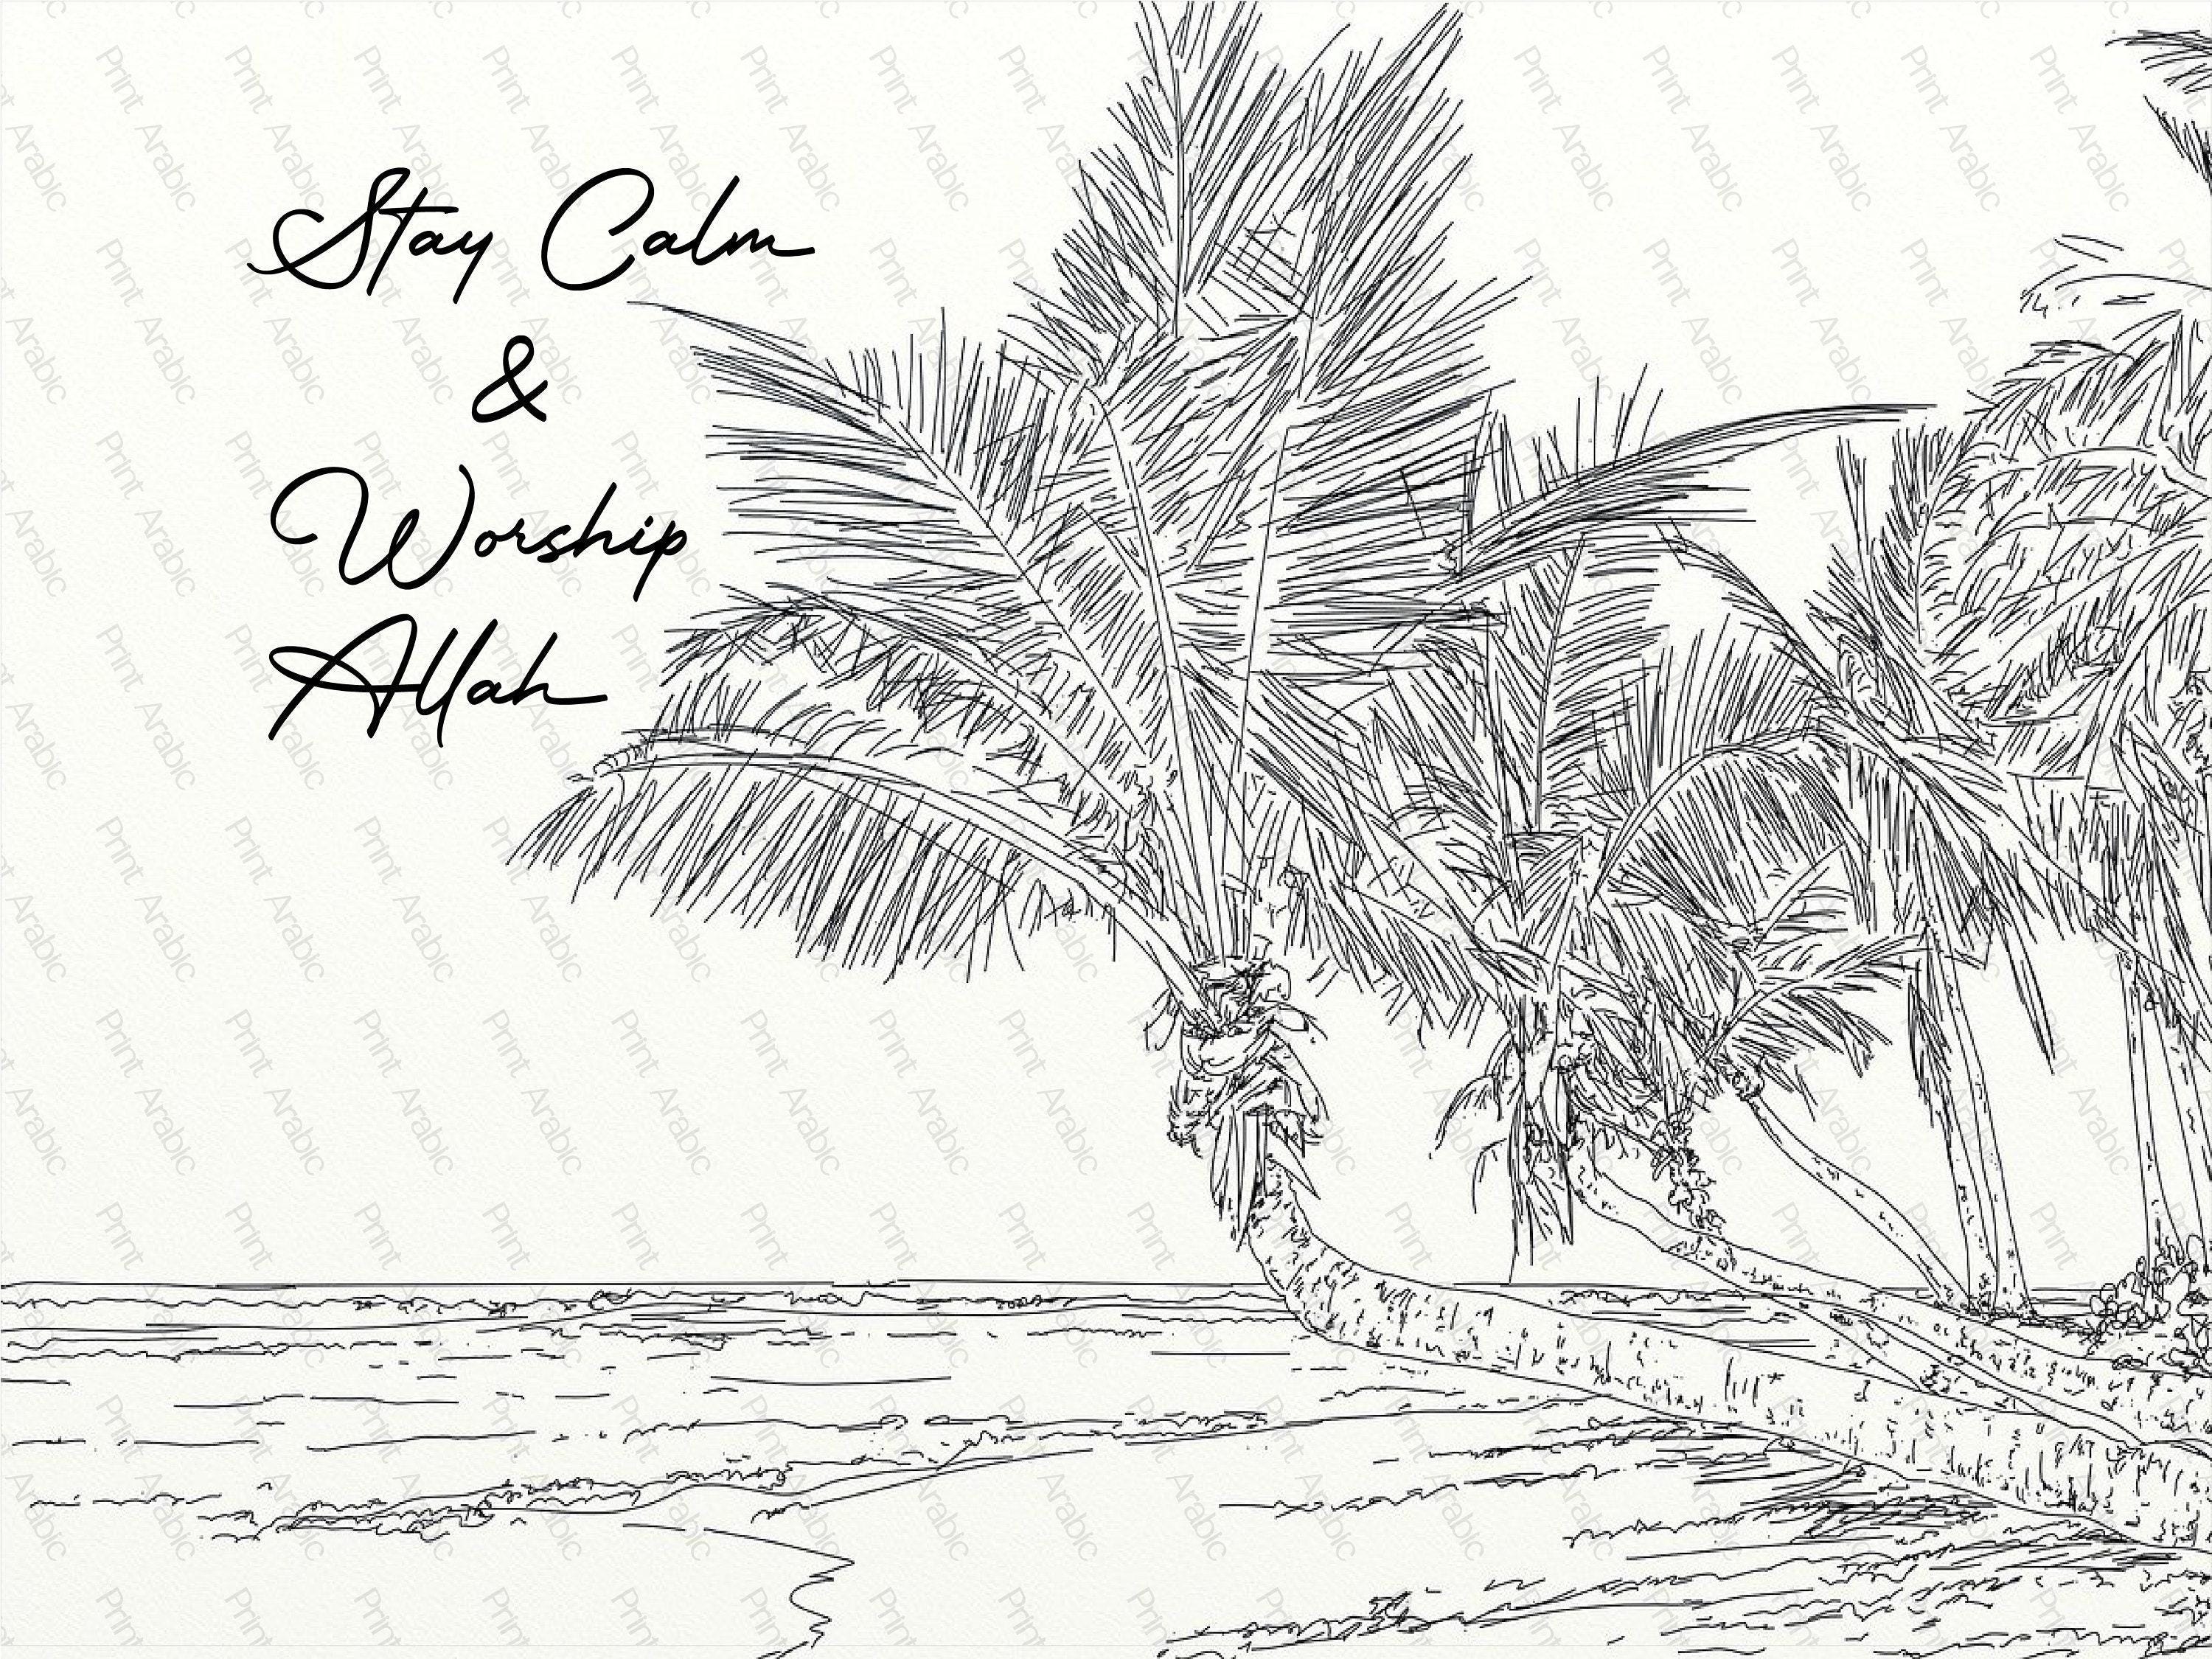 Stay Calm
&
Worship
Allah
Print Arabic